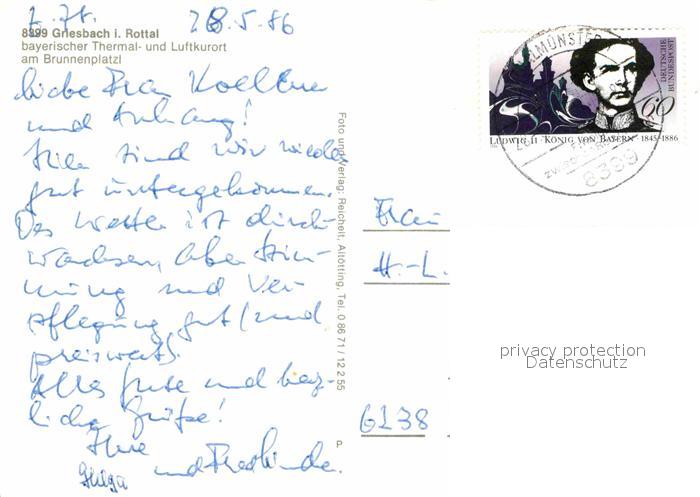 z. Zt. 28.5.86
8399 Griesbach i. Rottal
bayerischer Thermal- und Luftkurort
am Brunnenplatzl
Liebe Frau
und Anhang!
Hier sind wir wieder
gut untergekommen.
Das Wetter ist durch-
wachsen, aber Stim-
mung und Ver-
pflegung gut (und
preiswert).
Alles Gute und herz-
liche Grüße!
Ihre
Helga und
Foto und Verlag: Reicheit, Altötting, Tel. 0 86 71 / 12 2 55
P
Frau
H.-L.
6238
DEUTSCHE
BUNDESPOST
60
LUDWIG II · KÖNIG VON BAYERN · 1845-1886
8399
privacy protection
Datenschutz